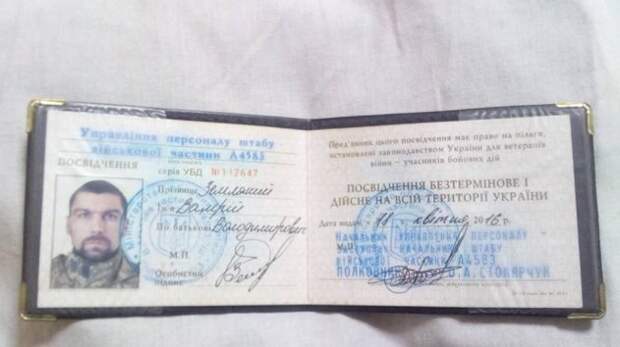 Управління персоналу штабу
військової частини А4583
ПОСВІДЧЕННЯ
серія УБД № 117647
Прізвище
Ім'я Валерій
По батькові Володимирович
М.П.
Особистий
підпис
Пред'явник цього посвідчення має право на пільги,
встановлені законодавством України для ветеранів
війни – учасників бойових дій
ПОСВІДЧЕННЯ БЕЗТЕРМІНОВЕ І
ДІЙСНЕ НА ВСІЙ ТЕРИТОРІЇ УКРАЇНИ
Дата видачі 11 квітня 2016 р.
НАЧАЛЬНИК УПРАВЛІННЯ ПЕРСОНАЛУ
НАЧАЛЬНИКА ШТАБУ
М.П.
ВІЙСЬКОВОЇ ЧАСТИНИ А4583
ПОЛКОВНИК О.А.СТОЛЯРЧУК